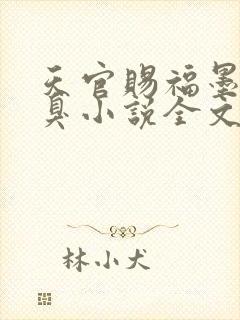 天官赐福墨
臭小说全文
林小犬